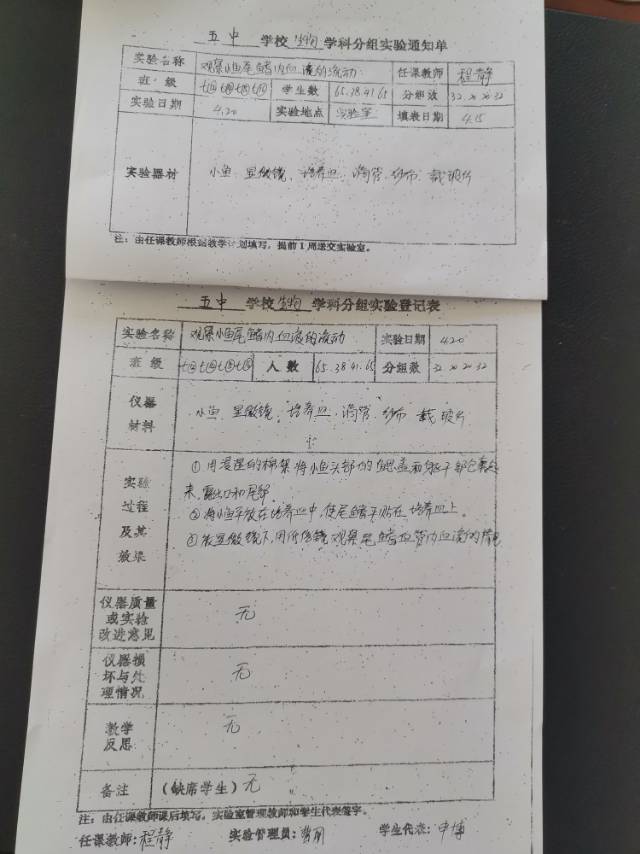 五中 学校 生物 学科分组实验通知单
实验名称 观察小鱼尾鳍内血液的流动 任课教师 程静
班级 学生数 65.38.41.65 分组数 32
实验日期 4.20 实验地点 实验室 填表日期 4.15
实验器材 小鱼 显微镜、培养皿、滴管、纱布、载玻片
注：由任课教师根据教学计划填写，提前1周递交实验室。
五中 学校 生物 学科分组实验登记表
实验名称 观察小鱼尾鳍内血液的流动 实验日期 4.20
班级 人数 65.38.41.65 分组数 32 20 20 32
仪器
材料
小鱼 显微镜、培养皿、滴管、纱布 载玻片
实验
过程
及其
效果
①用浸湿的棉絮将小鱼头部的鳃盖和躯干部包裹起
来，露出口和尾部
②将小鱼平放在培养皿中，使尾鳍平贴在培养皿上。
③放显微镜下，用低倍镜观察尾鳍血管内血液的情况
仪器质量
或实验
改进意见
无
仪器损
坏与处
理情况
无
教学
反思
无
备注 （缺席学生）无
注：由任课教师课后填写，实验室管理教师和学生代表签字。
任课教师：程静 实验管理员： 学生代表：申博